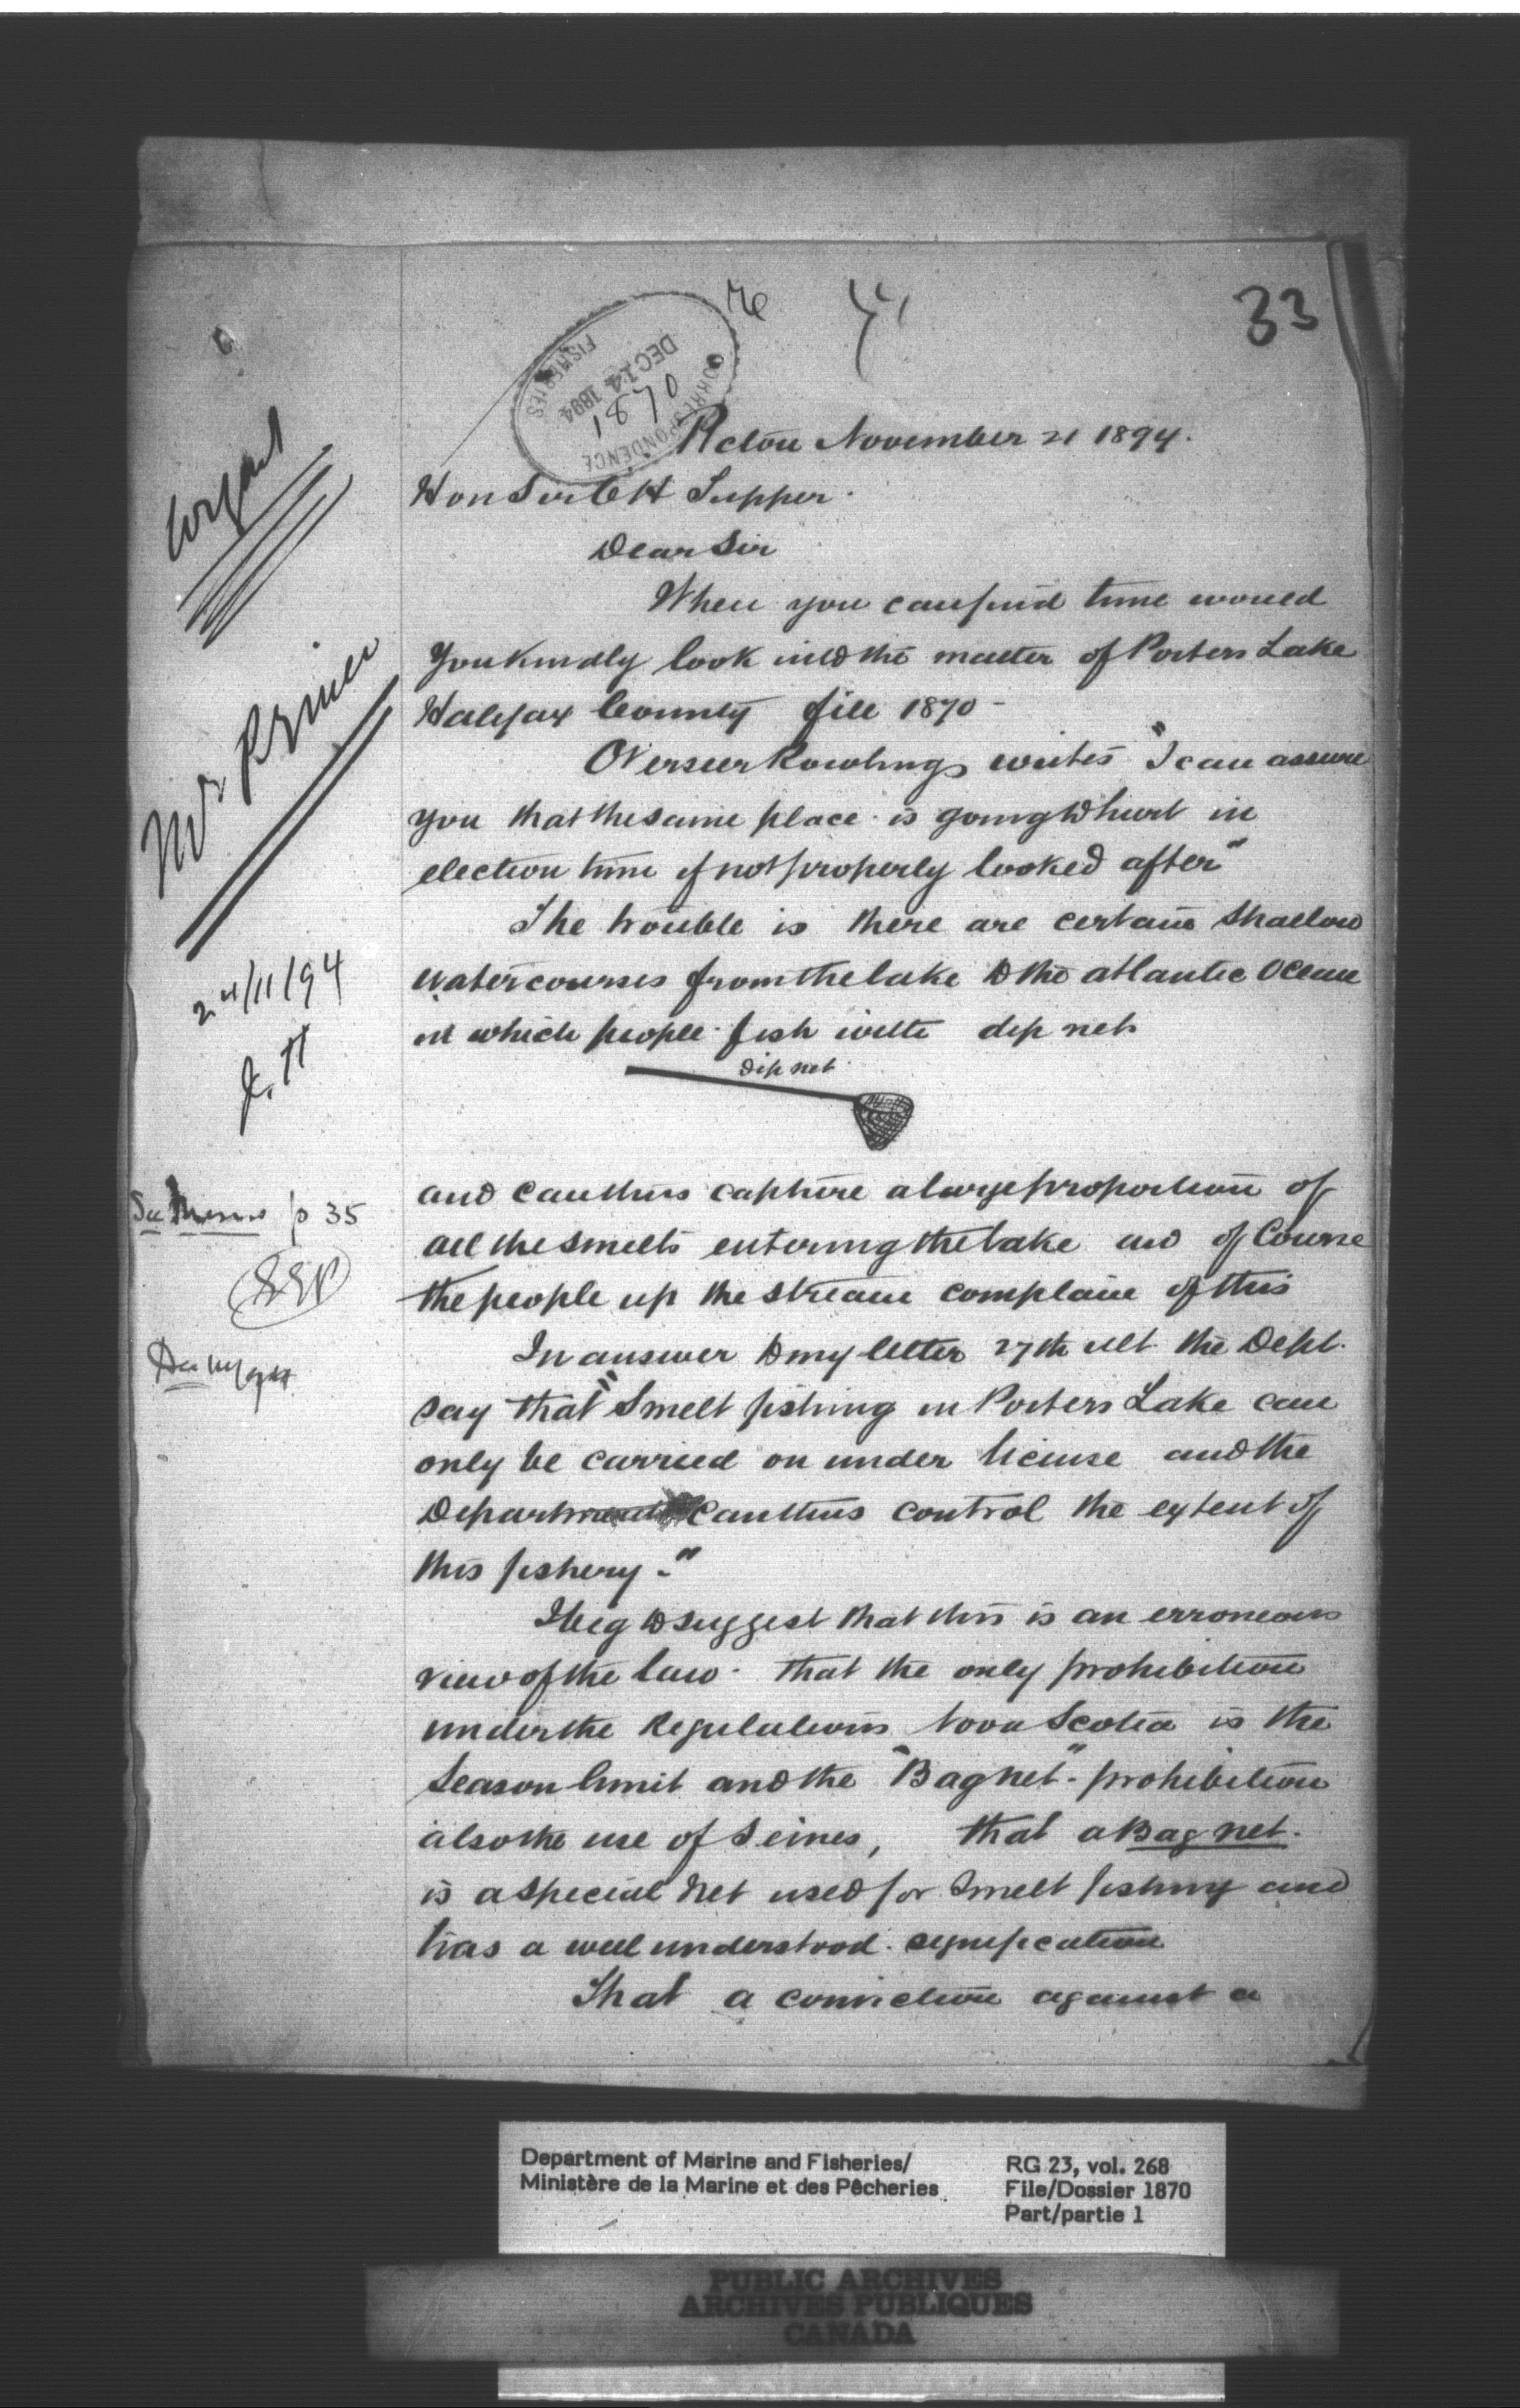 33
CORRESPONDENCE
DEC 14 1894
1870
FISHERIES
Pictou November 21 1894.
Hon Sir C H Tupper.
Dear Sir
When you can find time would
you kindly look into the matter of Porters Lake
Halifax County file 1870 -
Overseer Rowlings writes "I can assure
you that the same place is going to hurt in
election time if not properly looked after"
The trouble is there are certain shallow
watercourses from the lake to the atlantic Ocean
in which people fish with dip nets
dip net
and can thus capture a large proportion of
all the smelts entering the lake and of Course
the people up the stream complain of this
In answer to my letter 27th ult. the Dept.
say that "Smelt fishing in Porters Lake can
only be carried on under license and the
Department can thus control the extent of
this fishery."
I beg to suggest that this is an erroneous
view of the law. that the only prohibition
under the Regulations Nova Scotia is the
Season limit and the "Bag net" prohibition
also the use of Seines, that a Bag net.
is a special net used for Smelt fishing and
has a well understood signification
That a conviction against a
Urgent
Mr Prince
24/11/94
J. H
See Memo p 35
EEP
Department of Marine and Fisheries/
Ministère de la Marine et des Pêcheries
RG 23, vol. 268
File/Dossier 1870
Part/partie 1
PUBLIC ARCHIVES
ARCHIVES PUBLIQUES
CANADA